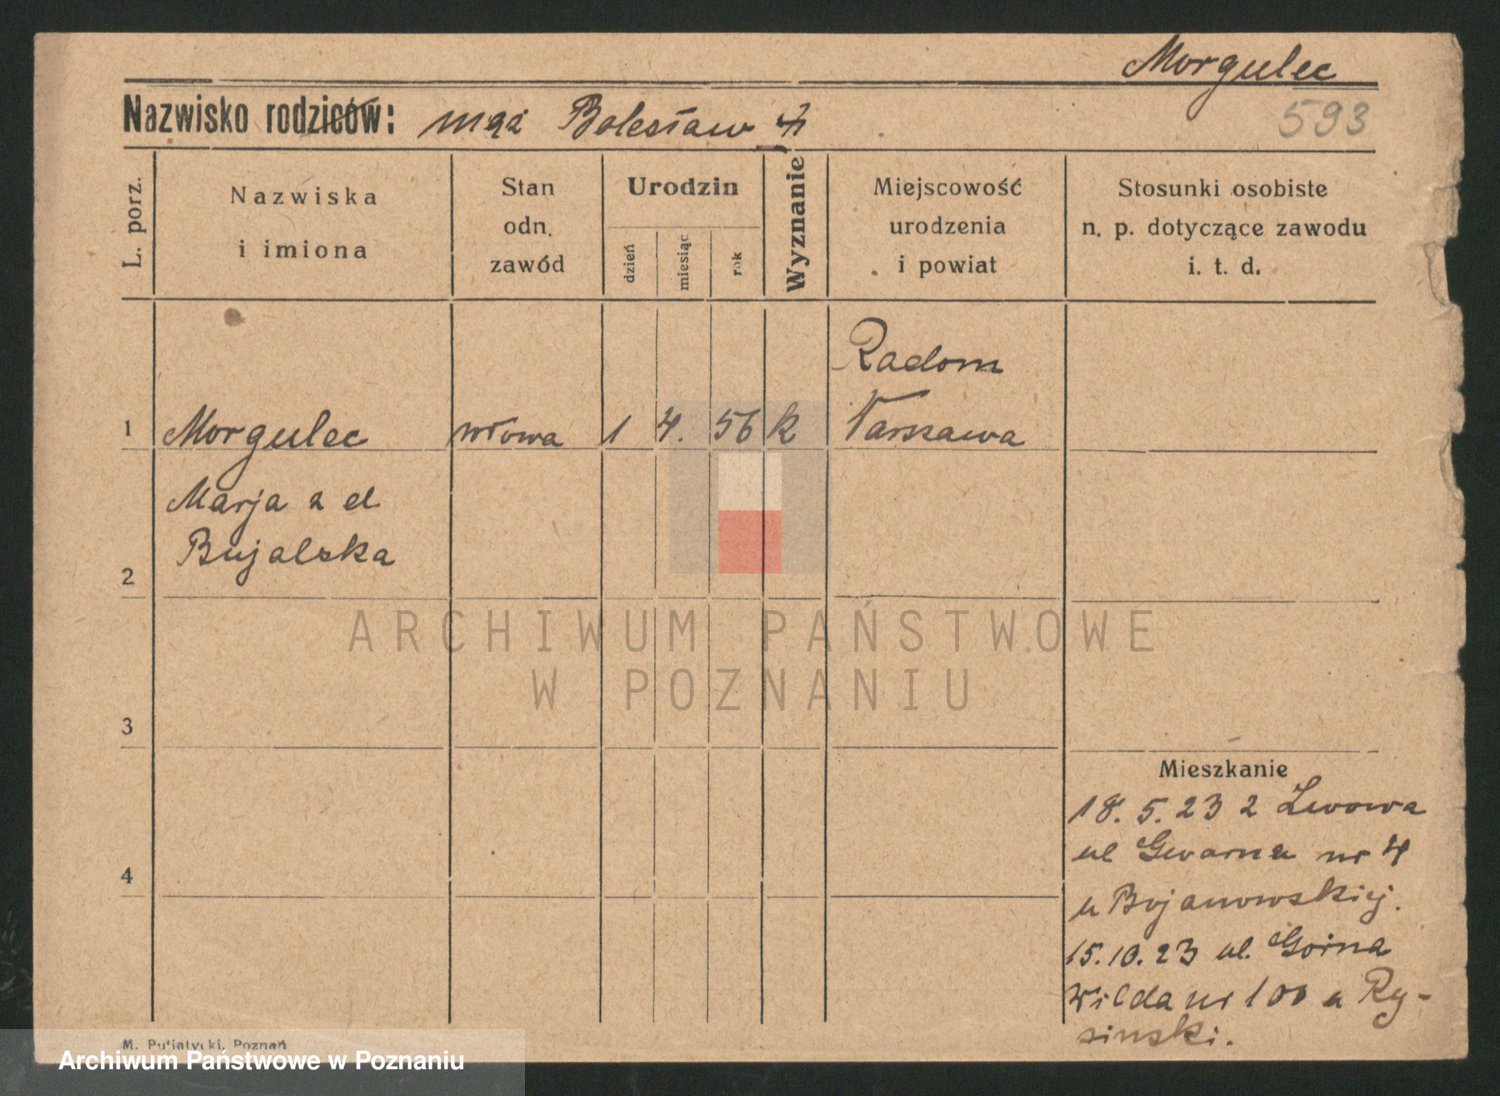 Morgulec
593
Nazwisko rodziców: mąż Bolesław
L. porz.
Nazwiska
i imiona
Stan
odn.
zawód
Urodzin
dzień
miesiąc
rok
Wyznanie
Miejscowość
urodzenia
i powiat
Stosunki osobiste
n. p. dotyczące zawodu
i. t. d.
Radom
1 Morgulec wdowa 1 4. 56 k Warszawa
Marja z d
Bujalska
2
3
4
ARCHIWUM PAŃSTWOWE
W POZNANIU
Mieszkanie
18. 5. 23 z Lwowa
ul Gwarna nr 4
u Bojanowskiej.
15.10.23 ul. Górna
Wilda nr 100 u Ry-
sinski.
M. Putiatycki, Poznań
Archiwum Państwowe w Poznaniu